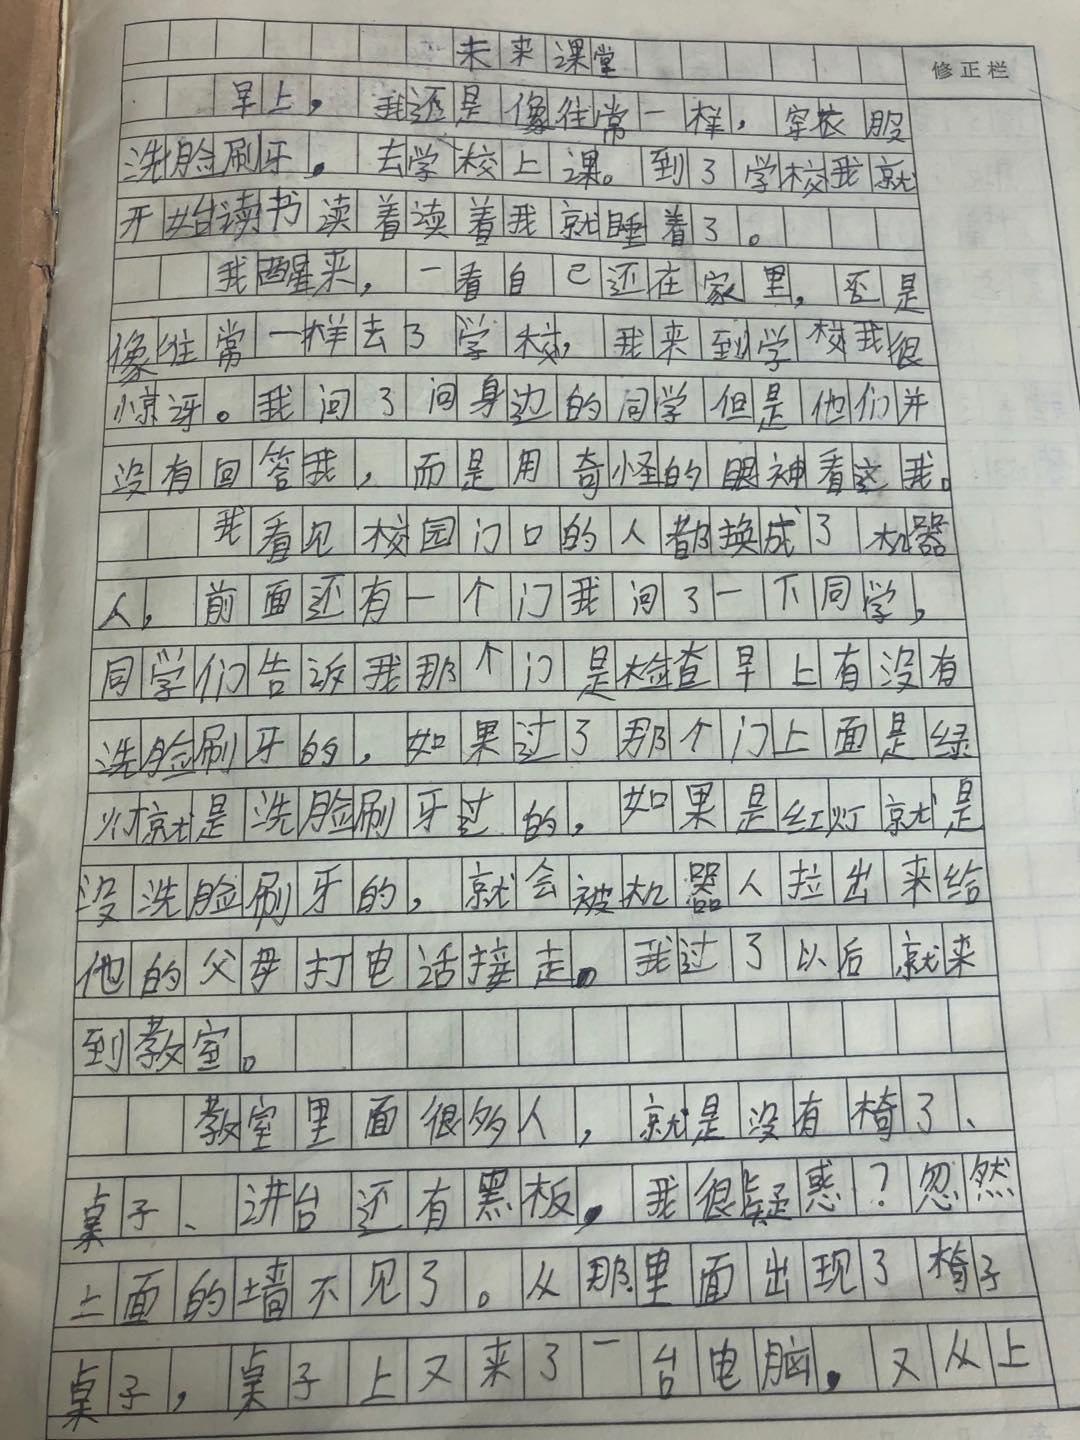 未来课堂
修正栏
早上，我还是像往常一样，穿衣服
洗脸刷牙。去学校上课。到了学校我就
开始读书读着读着我就睡着了。
我醒来，一看自己还在家里，还是
像往常一样去了学校，我来到学校我很
惊讶。我问了问身边的同学但是他们并
没有回答我，而是用奇怪的眼神看这我。
我看见校园门口的人都换成了机器
人，前面还有一个门我问了一下同学，
同学们告诉我那个门是检查早上有没有
洗脸刷牙的，如果过了那个门上面是绿
灯就是洗脸刷牙过的，如果是红灯就是
没洗脸刷牙的，就会被机器人拉出来给
他的父母打电话接走。我过了以后就来
到教室。
教室里面很多人，就是没有椅了、
桌子、讲台还有黑板，我很疑惑？忽然
上面的墙不见了。从那里面出现了椅子
桌子，桌子上又来了一台电脑，又从上